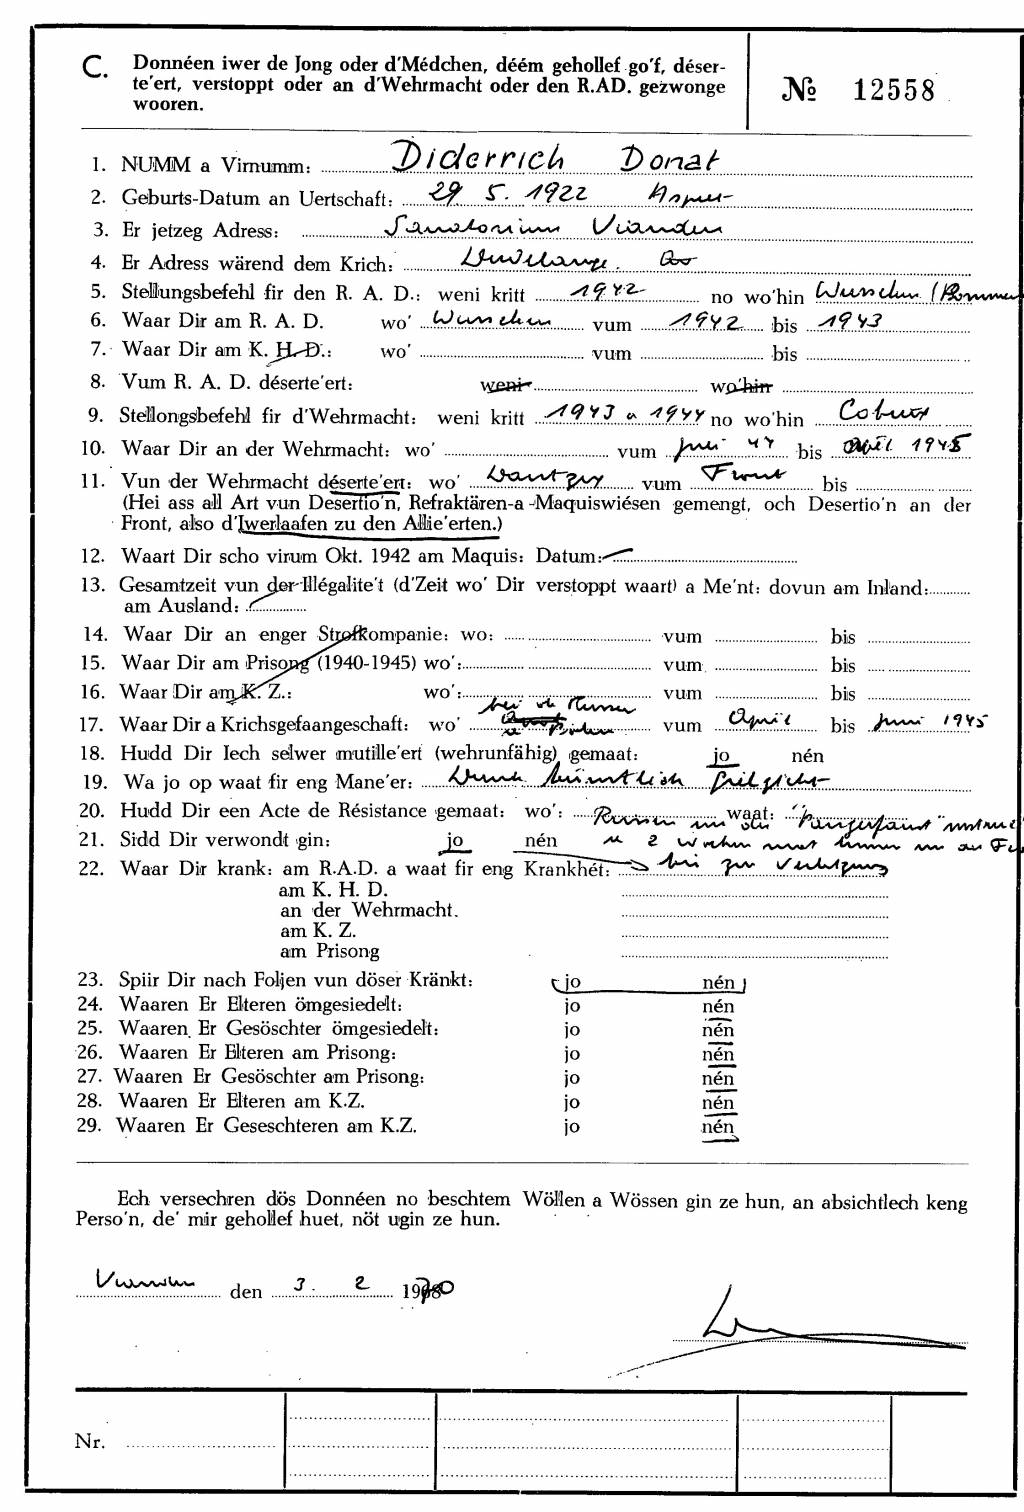 C. Donnéen iwer de Jong oder d'Médchen, déém gehollef go'f, déser-
te'ert, verstoppt oder an d'Wehrmacht oder den R.AD. gezwonge
wooren.
№ 12558
1. NUMM a Virnumm: Diderrich Donat
2. Geburts-Datum an Uertschaft: 29 5. 1922
3. Er jetzeg Adress: Sanatorium Vianden
4. Er Adress wärend dem Krich: Dudelange.
5. Stellungsbefehl fir den R. A. D.: weni kritt 1942 no wo'hin Wuschen (Pommern
6. Waar Dir am R. A. D. wo' Wuschen vum 1942 bis 1943
7. Waar Dir am K. H. D.: wo' vum bis
8. Vum R. A. D. déserte'ert: weni wo'hin
9. Stellongsbefehl fir d'Wehrmacht: weni kritt 1943 a 1944 no wo'hin Coburg
10. Waar Dir an der Wehrmacht: wo' vum Juni 44 bis April 1945
11. Vun der Wehrmacht déserte'ert: wo' Dantzig vum Front bis
(Hei ass all Art vun Desertio'n, Refraktären-a -Maquiswiésen gemengt, och Desertio'n an der
Front, also d'Iwerlaafen zu den Allie'erten.)
12. Waart Dir scho virum Okt. 1942 am Maquis: Datum:
13. Gesamtzeit vun der Illégalite't (d'Zeit wo' Dir verstoppt waart) a Me'nt: dovun am Inland:
am Ausland:
14. Waar Dir an enger Strofkompanie: wo: vum bis
15. Waar Dir am Prisong (1940-1945) wo': vum bis
16. Waar Dir am K. Z.: wo': vum bis
17. Waar Dir a Krichsgefaangeschaft: wo' vum April bis Juni 1945
18. Hudd Dir Iech selwer mutille'ert (wehrunfähig) gemaat: jo nén
19. Wa jo op waat fir eng Mane'er: Durch künstlich
20. Hudd Dir een Acte de Résistance gemaat: wo': waat:
21. Sidd Dir verwondt gin: jo nén
22. Waar Dir krank: am R.A.D. a waat fir eng Krankhét:
am K. H. D.
an der Wehrmacht.
am K. Z.
am Prisong
23. Spiir Dir nach Foljen vun döser Kränkt: jo nén
24. Waaren Er Elteren ömgesiedelt: jo nén
25. Waaren Er Gesöschter ömgesiedelt: jo nén
26. Waaren Er Elteren am Prisong: jo nén
27. Waaren Er Gesöschter am Prisong: jo nén
28. Waaren Er Elteren am K.Z. jo nén
29. Waaren Er Geseschteren am K.Z. jo nén
Ech versechren dös Donnéen no beschtem Wöllen a Wössen gin ze hun, an absichtlech keng
Perso'n, de' mir gehollef huet, nöt ugin ze hun.
Vianden den 3. 2 1970
Nr.